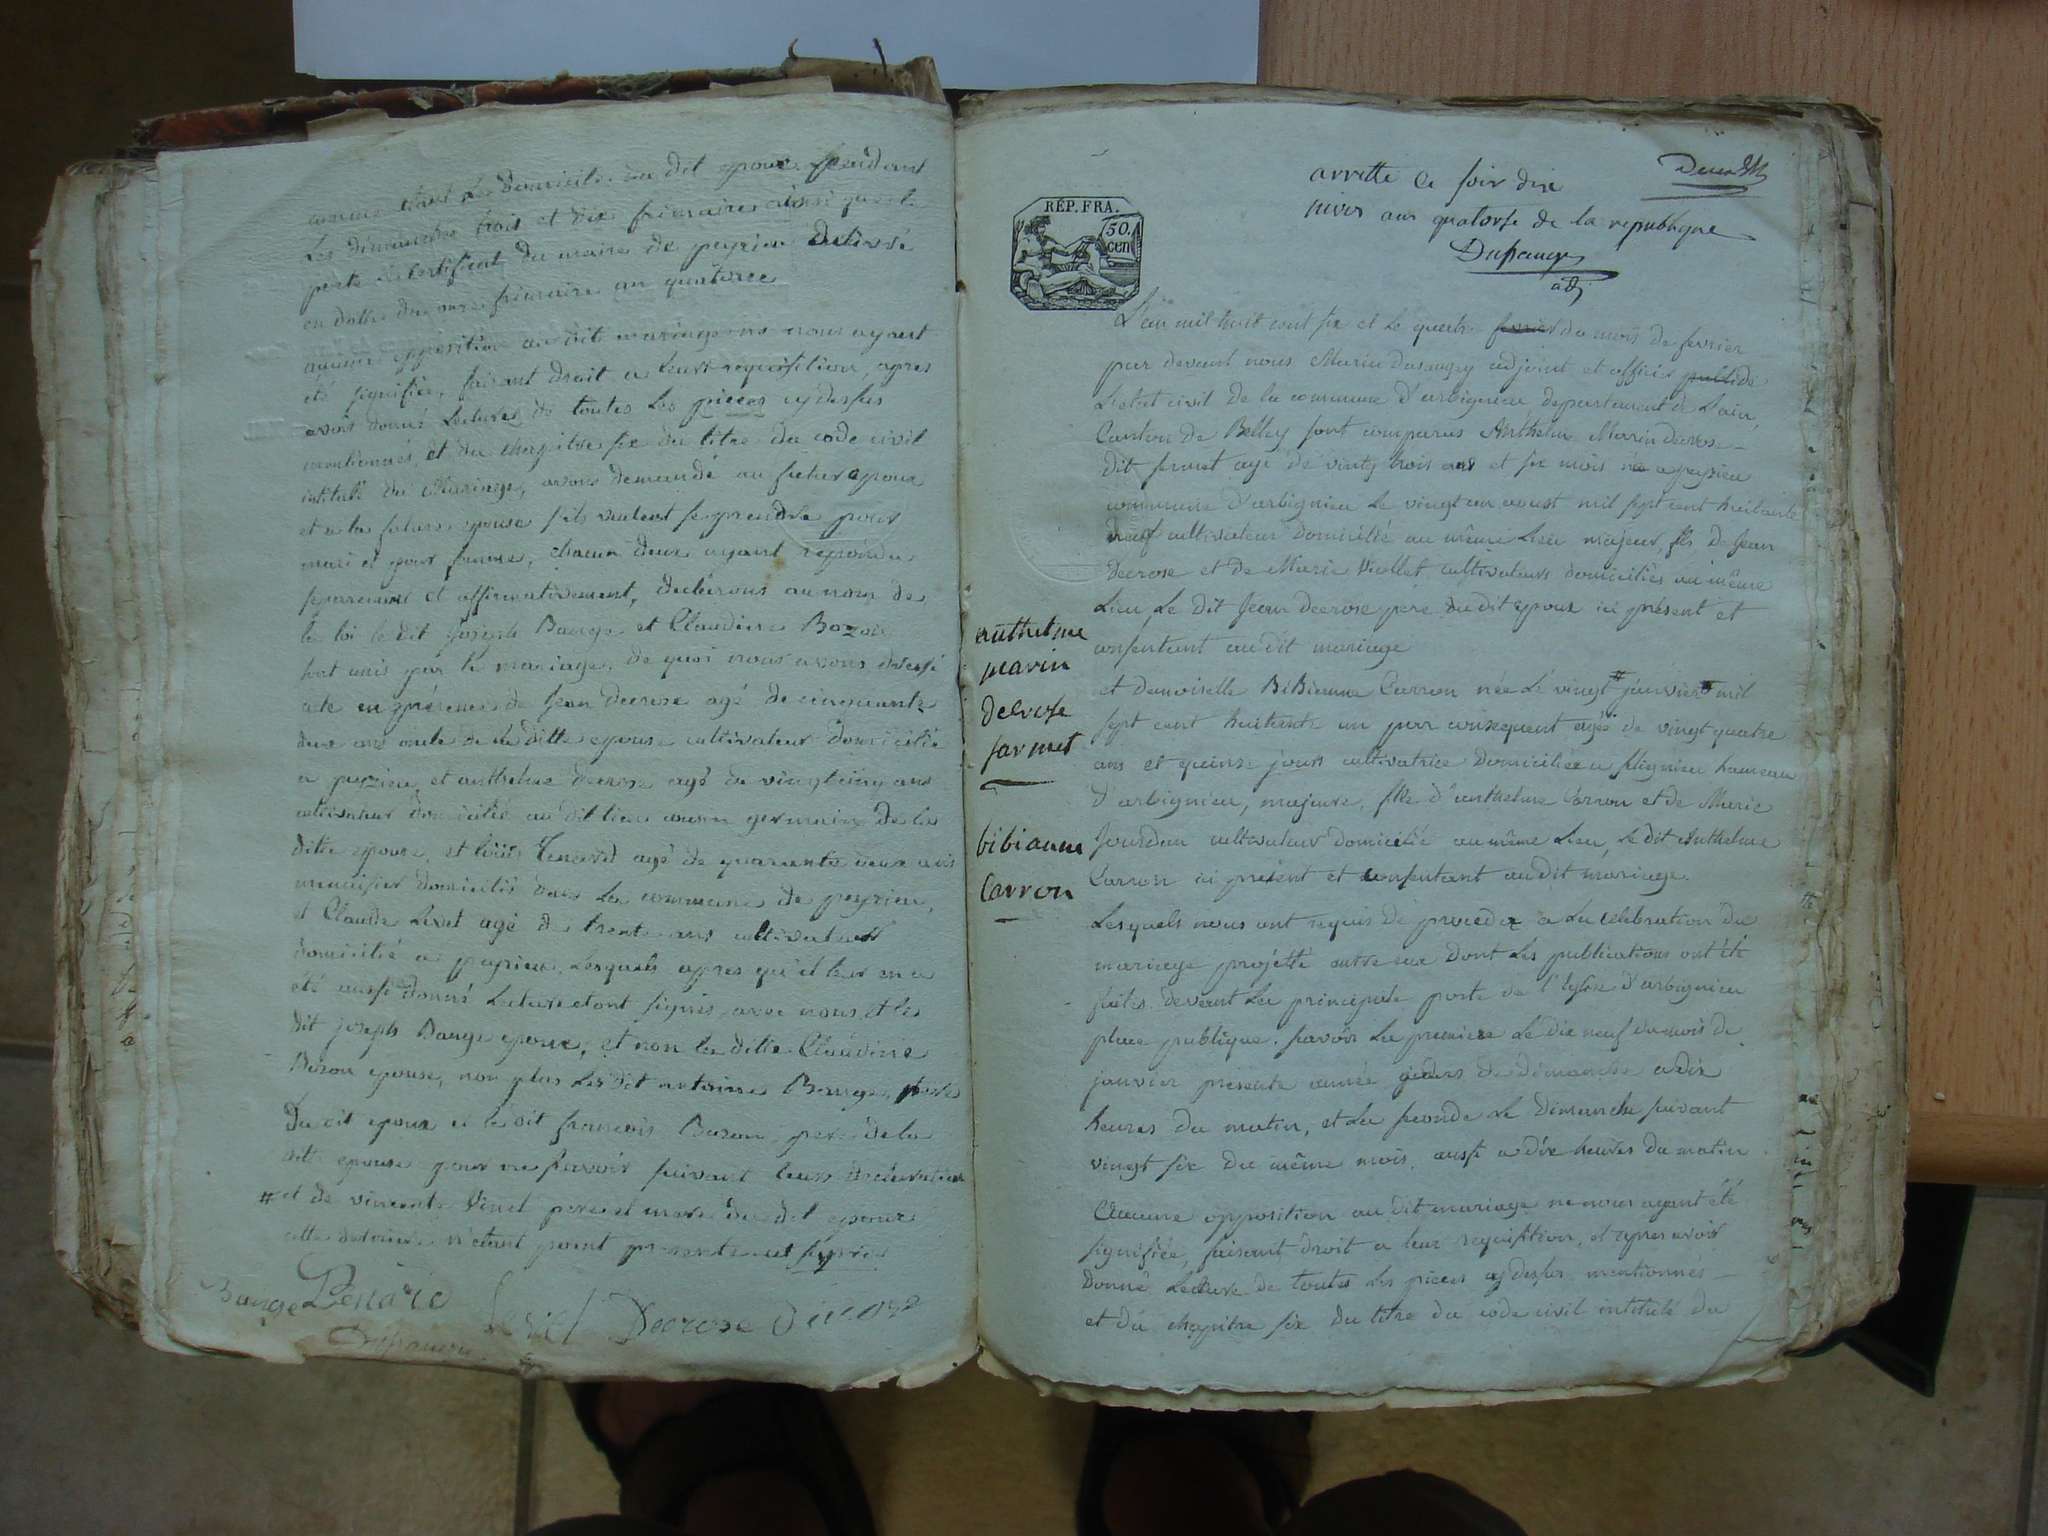 comme étant le domicile du dit epoux pendant
Les dimanches trois et dix frimaire ainsi que le
porte le certificat du maire de peyrieu délivré
en datte du onze frimaire an quatorze
aucune opposition au dit mariage ne nous ayant
été signifiée, faisant droit a leur requisition, apres
avoir donné Lecture de toutes les pieces cydessus
mentionnés, et du chapitre six du titre du code civil
intitulé du Mariage, avons demandé au futur epoux
et a la future epouse s'ils veulent se prendre pour
mari et pour femme, chacun deux ayant repondu
separement et affirmativement, declarons au nom de
la loi le dit joseph Bauge et Claudine Bozon
sont unis par le mariage, de quoi nous avons dressé
acte en présence de Jean Decrose agé de cinquante
deux ans oncle de la ditte epouse cultivateur domicilié
a pezieu et anthelme decrose agé de vingt cinq ans
cultivateur domicilié au dit lieu cousin germain de la
ditte epouse, et louis Tenard agé de quarante deux ans
domicilié dans la commune de peyrieu,
et Claude agé de trente ans cultivateur
domicilié a peyrieu Lesquels apres qu'il leur en a
été aussi donné Lecture ont signés avec nous et les
dit joseph Bauge epoux, et non la ditte Claudine
Bozon epouse, non plus Les dit antoine Bauge, père
Du dit epoux et le dit françois Bozon pere de la
ditte epouse pour ne savoir suivant leurs declaration
# et de vincente Vinet pere et mere du dit epoux
cette derniere n'etant point presente
Bauge Tenard Decrose Decrose
Dusaugey
arretté ce soir dix
nivos ans quatorse de la republique
Dusaugey
adj
RÉP. FRA.
50.
cen
L'an mil huit cent six et le quatre fevrier du mois de fevrier
par devant nous Marin Dusaugey adjoint et officier public de
L'etat civil de la commune d'arbignieu departement de L'ain,
Canton de Belley sont comparus Anthelme Marin decrose
dit fermet agé de vingt trois ans et six mois né a peysieu
commune d'arbignieu Le vingt un aoust mil sept cent huitante
neuf cultivateur Domicilié au même Lieu majeur, fils de Jean
Decrose et de Marie Viollet cultivateurs domiciliés au même
Lieu Le Dit Jean Decrose père du dit epoux ici présent et
consentant au dit mariage
et demoiselle BiBienne Carron née Le vingt # janvier mil
sept cent huitante un par consequent agée de vingt quatre
ans et quinze jours cultivatrice Domiciliée a slignieu hameau
D'arbignieu, majeure, fille d'anthelme Carron et de Marie
Jourdan cultivateur domicilié au même Lieu, Le dit Anthelme
Carron ici présent et consentant au dit mariage.
Lesquels nous ont requis de proceder a La celebration du
mariage projetté entre eux Dont Les publications ont été
faites devant La principale porte de l'eglise d'arbignieu
place publique. savoir La premiere Le dix neuf du mois de
janvier présente année jours de dimanche a dix
heures du matin, et La seconde Le Dimanche suivant
vingt six du même mois, aussi a dix heures du matin
Aucune opposition au Dit mariage ne nous ayant été
signifiée, faisant droit a leur requisition, et apres avoir
donné Lecture de toutes Les pieces cydessus mentionnés
et du chapitre six du titre du code civil intitulé du
anthelme
marin
decrose
farmet
bibianne
Carron